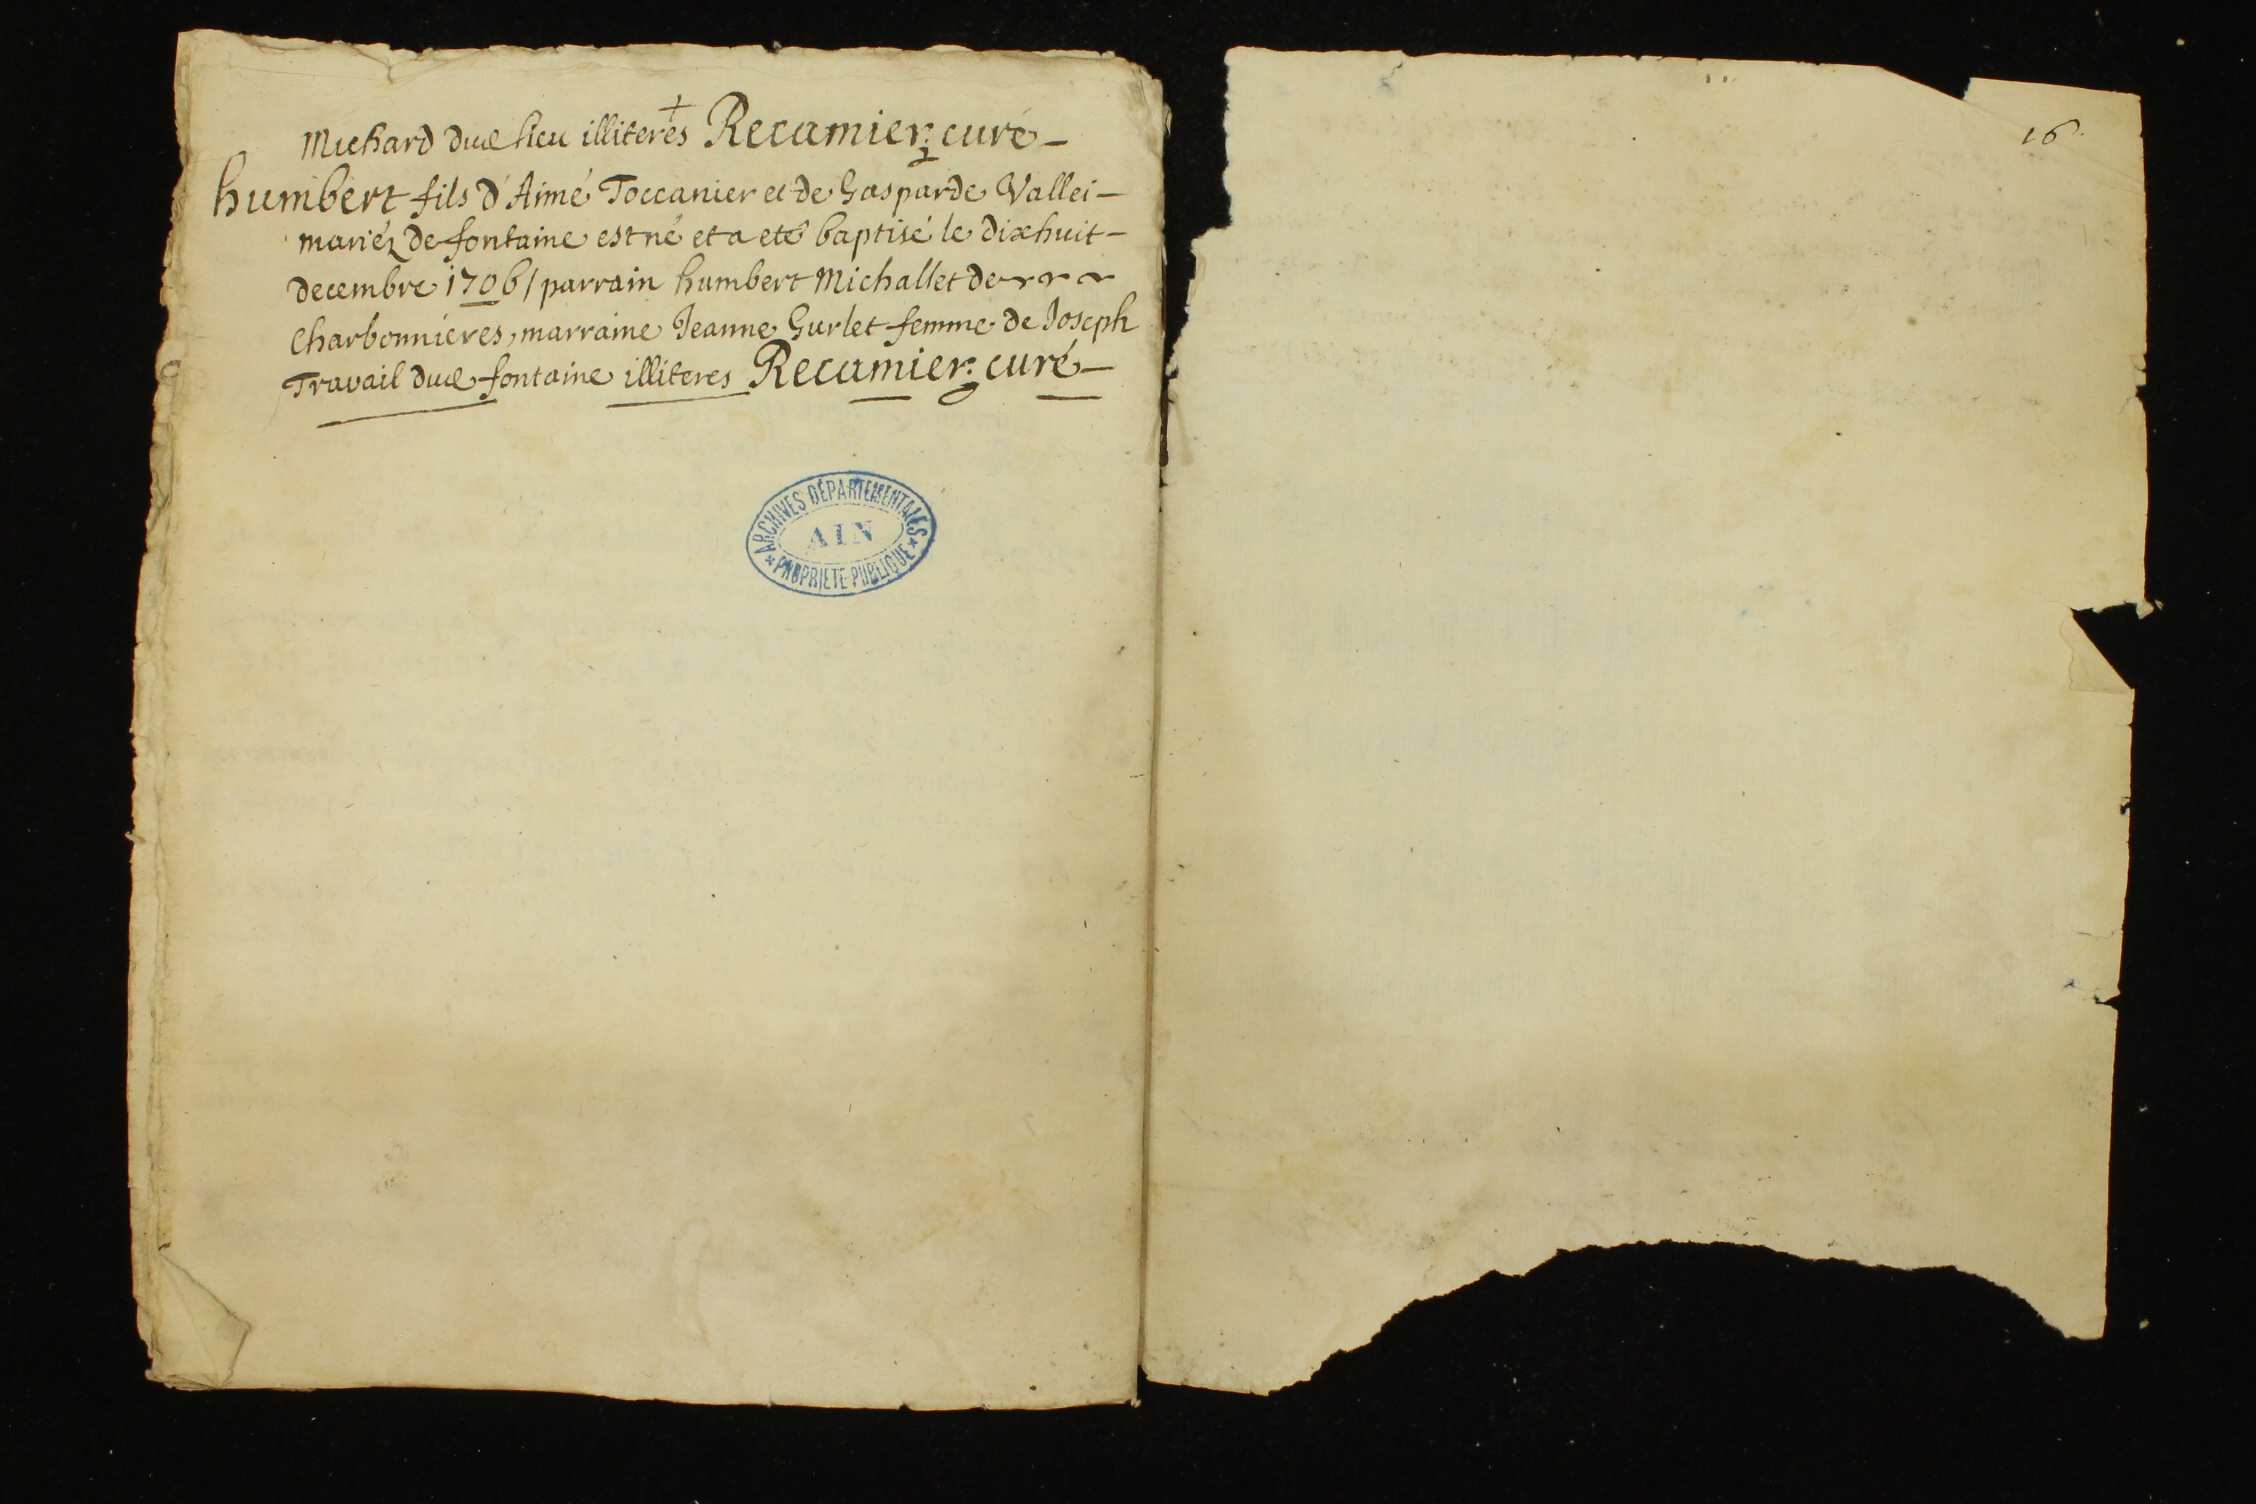 Michard dud lieu illiterés Recamier curé
humbert fils d'Aimé Toccanier et de Gasparde Vallei
mariéz de fontaine est né et a eté baptisé le dixhuit
decembre 1706/ parrain humbert Michallet de
Charbonnieres, marraine Jeanne Gurlet femme de Joseph
Travail dud fontaine illiteres Recamier curé
ARCHIVES DÉPARTEMENTALES
AIN
PROPRIETE PUBLIQUE
16